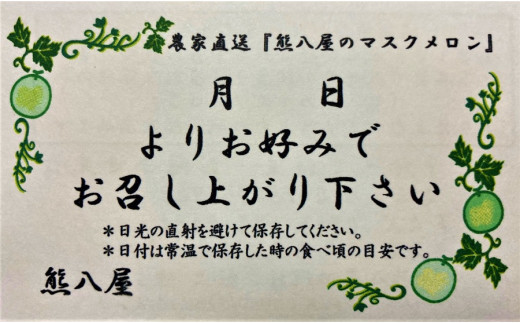 農家直送『熊八屋のマスクメロン』
月　　日
よりお好みで
お召し上がり下さい
＊日光の直射を避けて保存してください。
＊日付は常温で保存した時の食べ頃の目安です。
熊八屋